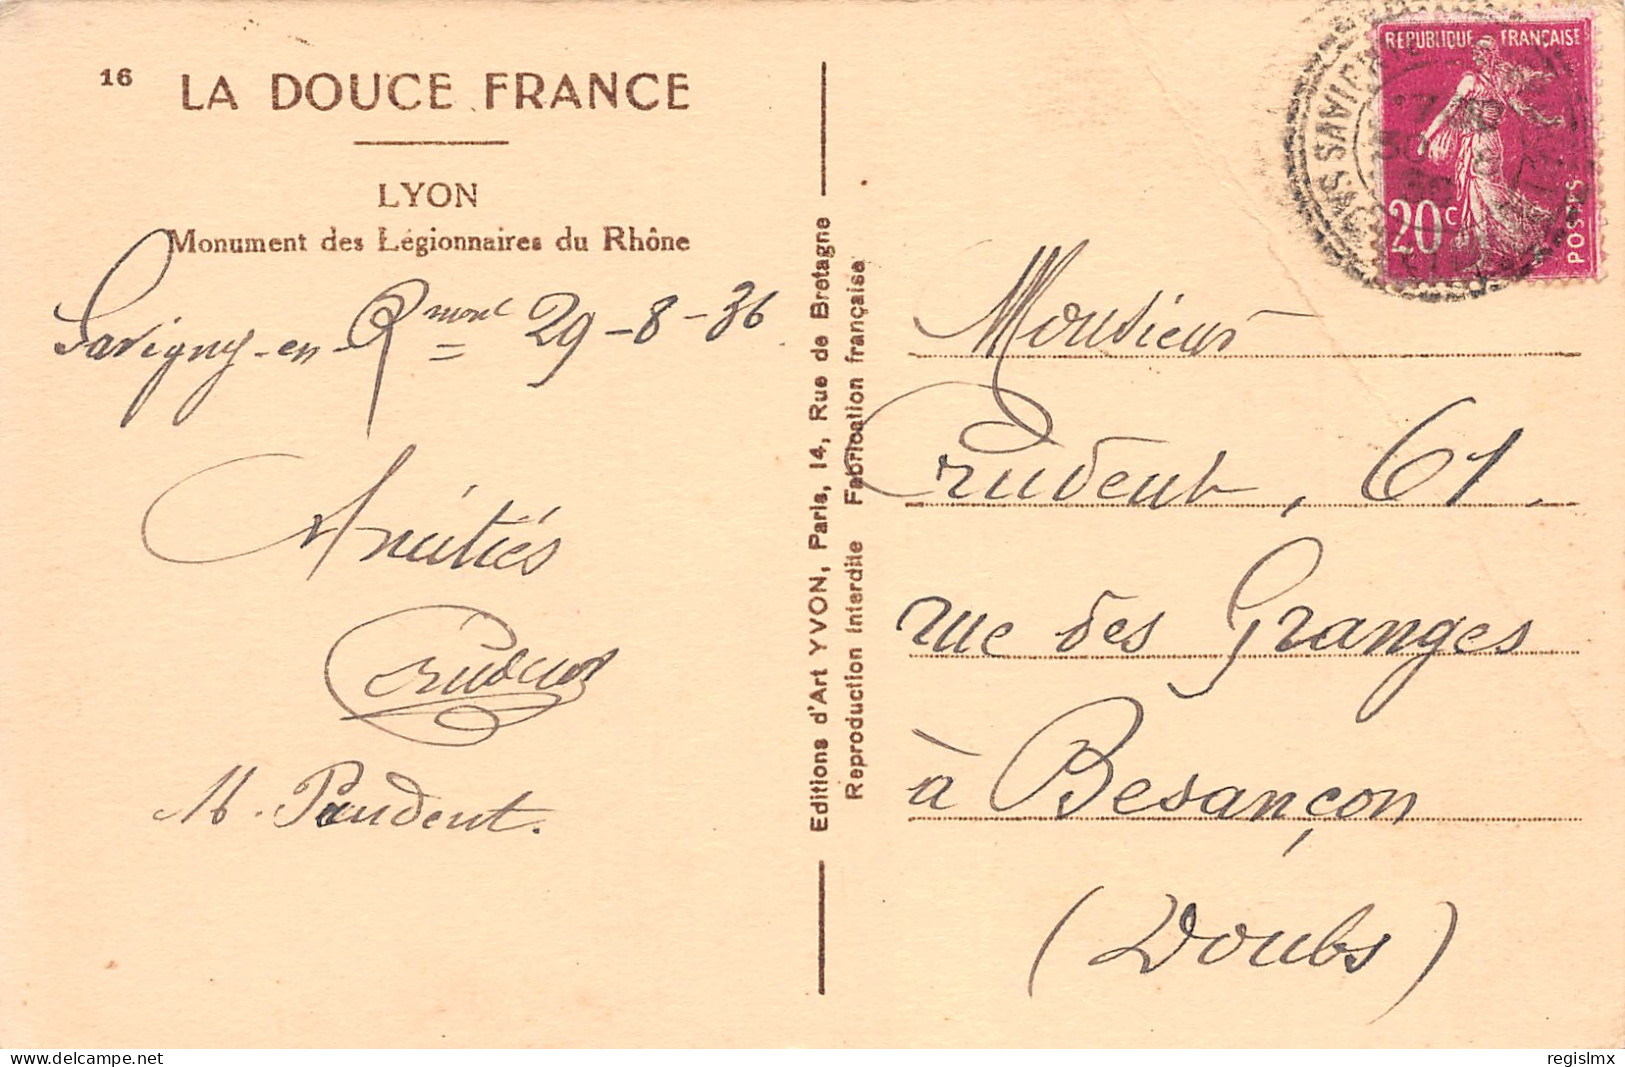 16 LA DOUCE FRANCE
LYON
Monument des Légionnaires du Rhône
Savigny-en-Rmont 29-8-36
Amitiés
Prudent
M. Prudent.
Editions d'Art YVON, Paris, 14, Rue de Bretagne
Reproduction Interdite Fabrication française
REPUBLIQUE FRANÇAISE
20c
POSTES
Monsieur
Prudent, 61.
rue des Granges
à Besançon
(Doubs)
delcampe.net
regislmx